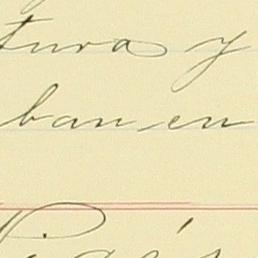 turas y
ban en